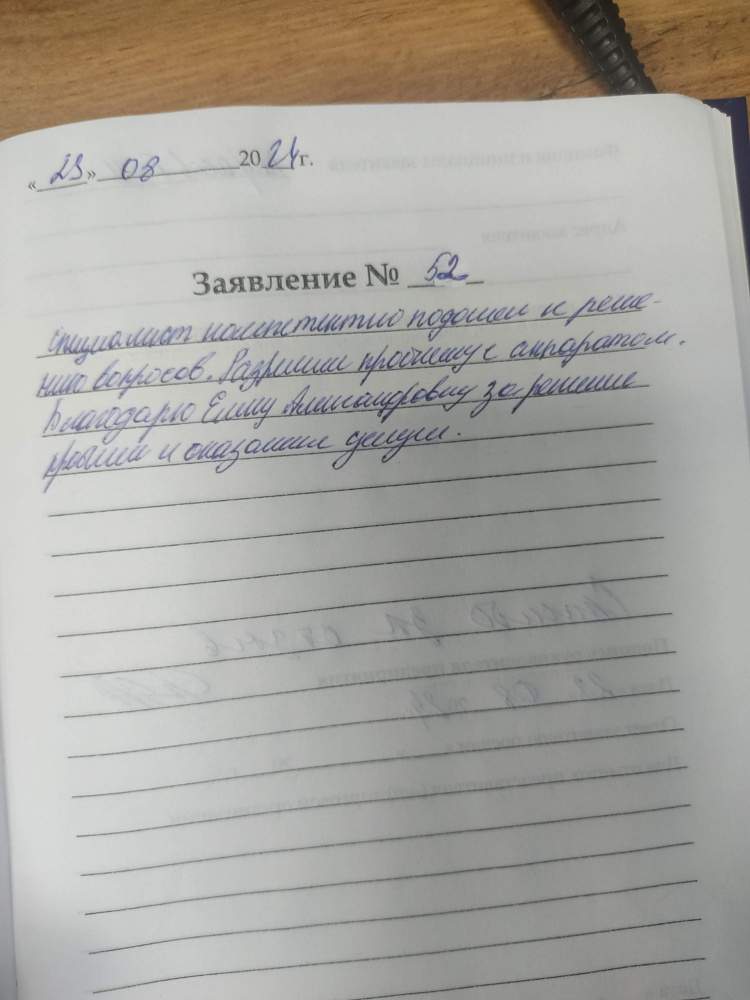 « 23 » 08 2024 г.
Заявление № 52
Специалист компетентно подошел к реше-
нию вопросов. Разрешил проблему с аппаратом.
Благодарю Елену Александровну за решение
и оказание услуги.